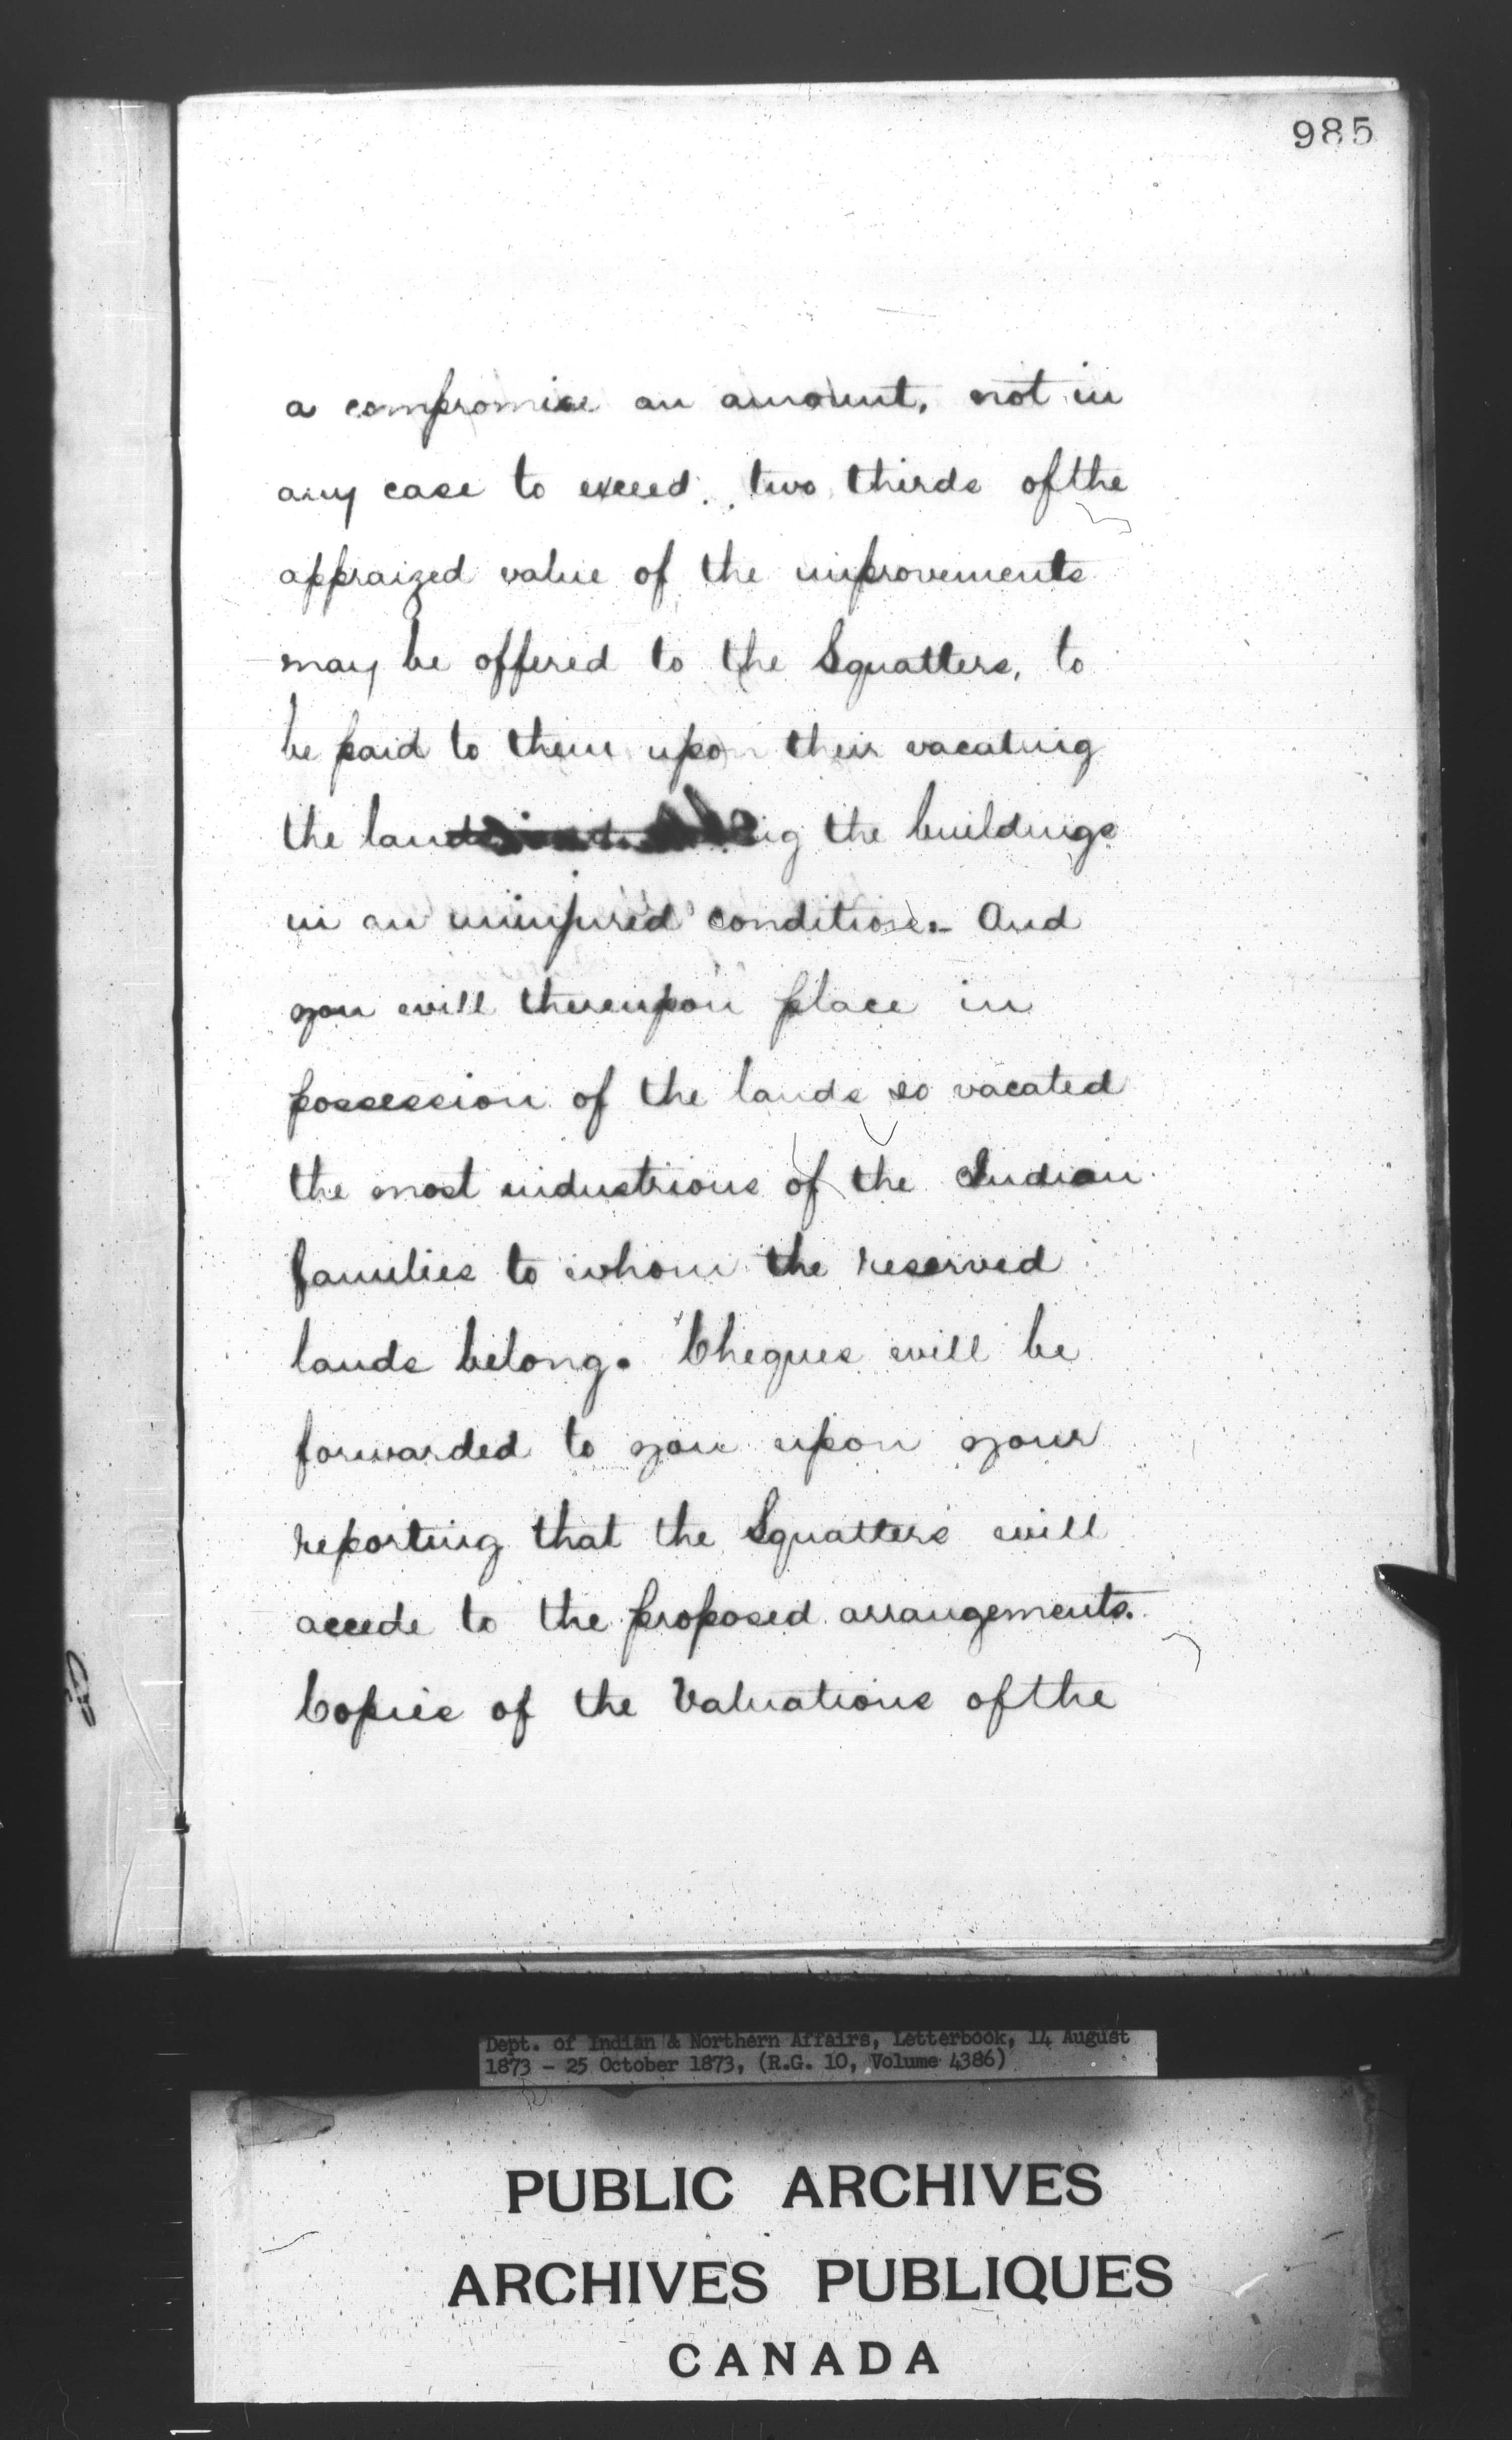 985
a compromise an amount, not in
any case to exceed two thirds of the
appraized value of the improvements
may be offered to the Squatters, to
be paid to them upon their vacating
the lands the buildings
in an uninjured condition. And
you will thereupon place in
possession of the lands so vacated
the most industrious of the Indian
families to whom the reserved
lands belong. Cheques will be
forwarded to you upon your
reporting that the Squatters will
accede to the proposed arrangements.
Copies of the Valuations of the
Dept. of Indian & Northern Affairs, Letterbook, 14 August
1873 - 25 October 1873, (R.G. 10, Volume 4386)
PUBLIC ARCHIVES
ARCHIVES PUBLIQUES
CANADA